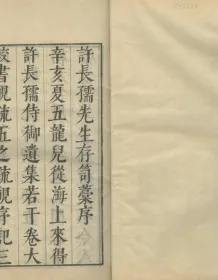 許長孺先生存笥藁序
辛亥夏五龍兒從海上來得
許長孺侍御遺集若干卷大
較書覯疏五之疏觀序記三